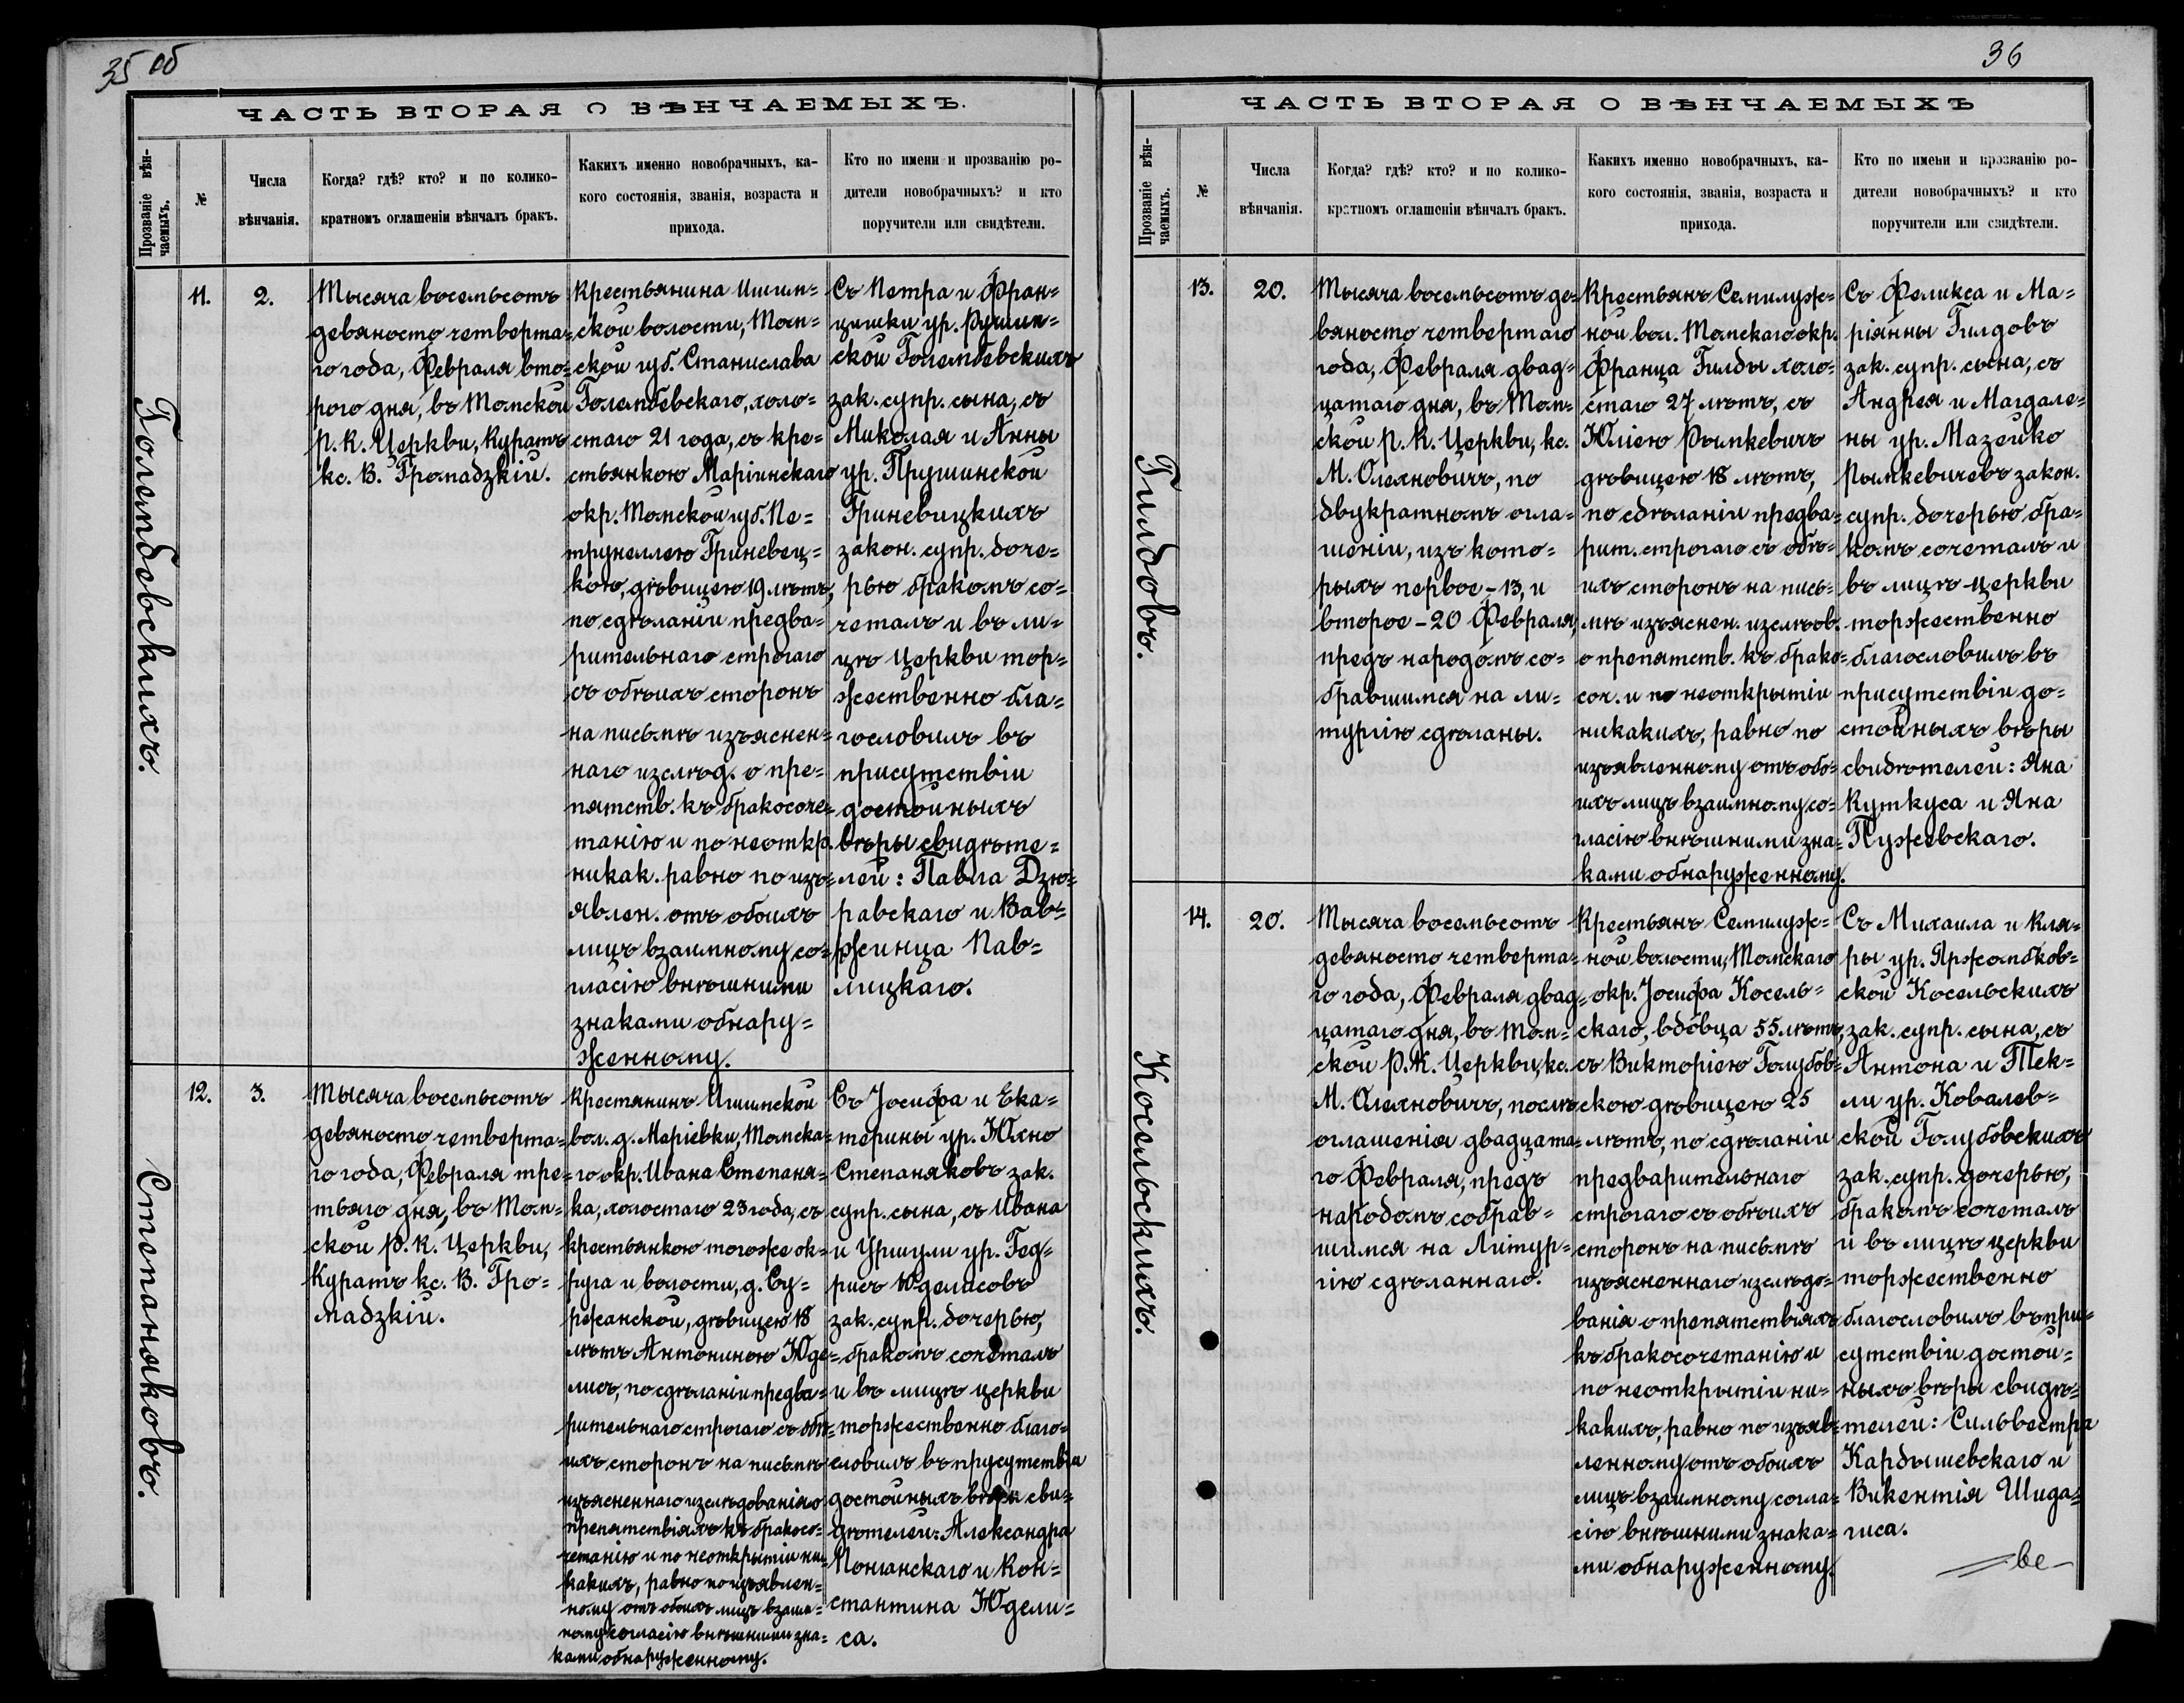 35 об
ЧАСТЬ ВТОРАЯ О ВѢНЧАЕМЫХЪ.
Прозваніе вѣн-
чаемыхъ.
№
Числа
вѣнчанія.
Когда? гдѣ? кто? и по колико-
кратномъ оглашеніи вѣнчалъ бракъ.
Какихъ именно новобрачныхъ, ка-
кого состоянія, званія, возраста и
прихода.
Кто по имени и прозванію ро-
дители новобрачныхъ? и кто
поручители или свидѣтели.
Голембевскихъ.
11.
2.
Тысяча восемьсотъ
девяносто четверта=
го года, Февраля вто=
рого дня, въ Томской
р. К. Церкви, Куратъ
кс. В. Громадзкій.
Крестьянина Ишим=
ской волости, Том=
ской губ. Станислава
Голембевскаго, холо=
стаго 21 года, съ кре=
стьянкою Маріинскаго
окр. Томской губ. Пе=
трунеллею Гриневец=
кою, дѣвицею 19 лѣтъ,
по сдѣланіи предва=
рительнаго строгаго
съ обѣихъ сторонъ
на письмѣ изъяснен=
наго изслѣд. о пре=
пятств. къ бракосоче=
танію и по неоткр.
никак. равно по изъ=
явлен. отъ обоихъ
лицъ взаимному со=
гласію внѣшними
знаками обнару=
женному.
Съ Петра и Фран=
цишки ур.
ской Голембевскихъ
зак. супр. сына, съ
Миколая и Анны
ур. Прушинской
Гриневицкихъ
закон. супр. доче=
рью бракомъ со=
четалъ и въ ли=
цѣ Церкви тор=
жественно бла=
гословилъ въ
присутствіи
достойныхъ
вѣры свидѣте=
лей: Павла Дзю=
равскаго и Вав=
жинца Пав=
лицкаго.
Степаняковъ.
12.
3.
Тысяча восемьсотъ
девяносто четверта=
го года, Февраля тре=
тьяго дня, въ Том=
ской р. К. Церкви,
Куратъ кс. В. Гро=
мадзкій.
Крестянинъ Ишимской
вол. д. Маріевки, Томска=
го окр. Ивана Степаня=
ка, холостаго 23 года, съ
крестьянкою тогоже ок=
руга и волости, д. Су=
ржанской, дѣвицею 18
лѣтъ Антониною Юде=
лисъ, по сдѣланіи предва=
рительнаго строгаго съ обѣ=
ихъ сторонъ на письмѣ
изъясненнаго изслѣдованія о
препятствіяхъ къ бракосо=
четанію и по неоткрытіи ни=
какихъ, равно по изъявлен=
ному отъ обоихъ лицъ взаим=
ному согласію внѣшними зна=
ками обнаруженному.
Съ Іосифа и Ека=
терины ур. Юхно
Степаняковъ зак.
супр. сына, съ Ивана
и Уршули ур. Гед=
рисъ Юделисовъ
зак. супр. дочерью,
бракомъ сочеталъ
и въ лицѣ церкви
торжественно благо=
словилъ въ присутствіи
достойныхъ вѣры сви=
дѣтелей: Александра
Понганскаго и Кон=
стантина Юдели=
са.
36
ЧАСТЬ ВТОРАЯ О ВѢНЧАЕМЫХЪ
Прозваніе вѣн-
чаемыхъ.
№
Числа
вѣнчанія.
Когда? гдѣ? кто? и по колико-
кратномъ оглашеніи вѣнчалъ бракъ.
Какихъ именно новобрачныхъ, ка-
кого состоянія, званія, возраста и
прихода.
Кто по имени и прозванію ро-
дители новобрачныхъ? и кто
поручители или свидѣтели.
Гилдовъ.
13.
20.
Тысяча восемьсотъ де=
вяносто четвертаго
года, Февраля двад=
цатаго дня, въ Том=
ской р. К. Церкви, кс.
М. Олехновичъ, по
двукратномъ огла=
шеніи, изъ кото=
рыхъ первое - 13, и
второе - 20 Февраля,
предъ народомъ со=
бравшимся на ли=
тургію сдѣланы.
Крестьянъ Семилуж=
ной вол. Томскаго окр.
Франца Гилды холо=
стаго 27 лѣтъ, съ
Юліею Рымкевичъ
дѣвицею 18 лѣтъ,
по сдѣланіи предва=
рит. строгаго съ обѣ=
ихъ сторонъ на пись=
мѣ изъяснен. изслѣдов.
о препятств. къ брако=
соч. и по неоткрытіи
никакихъ, равно по
изъявленному отъ обо=
ихъ лицъ взаимному со=
гласію внѣшними зна=
ками обнаруженному.
Съ Феликса и Ма=
ріянны Гилдовъ
зак. супр. сына, съ
Андрея и Магдале=
ны ур. Мазейко
Рымкевичевъ закон.
супр. дочерью бра=
комъ сочеталъ и
въ лицѣ церкви
торжественно
благословилъ въ
присутствіи до=
стойныхъ вѣры
свидѣтелей: Яна
Куткуса и Яна
Пужевскаго.
Косельскихъ.
14.
20.
Тысяча восемьсотъ
девяносто четверта=
го года, Февраля двад=
цатаго дня, въ Том=
ской р. К. Церкви, кс.
М. Олехновичъ, послѣ
оглашенія двадцата=
го Февраля, предъ
народомъ собрав=
шимся на Литур=
гію сдѣланнаго.
Крестьянъ Семилуж=
ной волости, Томскаго
окр. Іосифа Косель=
скаго, вдовца 55 лѣтъ,
съ Викторіею Голубов=
скою дѣвицею 25
лѣтъ, по сдѣланіи
предварительнаго
строгаго съ обѣихъ
сторонъ на письмѣ
изъясненнаго изслѣдо=
ванія о препятствіяхъ
къ бракосочетанію и
по неоткрытіи ни=
какихъ, равно по изъяв=
ленному отъ обоихъ
лицъ взаимному согла=
сію внѣшними знака=
ми обнаруженному.
Съ Михаила и Кля=
ры ур. Яржомбков=
ской Косельскихъ
зак. супр. сына, съ
Антона и Тек=
ли ур. Ковалев=
ской Голубовскихъ
зак. супр. дочерью,
бракомъ сочеталъ
и въ лицѣ церкви
торжественно
благословилъ въ при=
сутствіи достой=
ныхъ вѣры свидѣ=
телей: Сильвестра
Кардышевскаго и
Викентія Шида=
гиса.